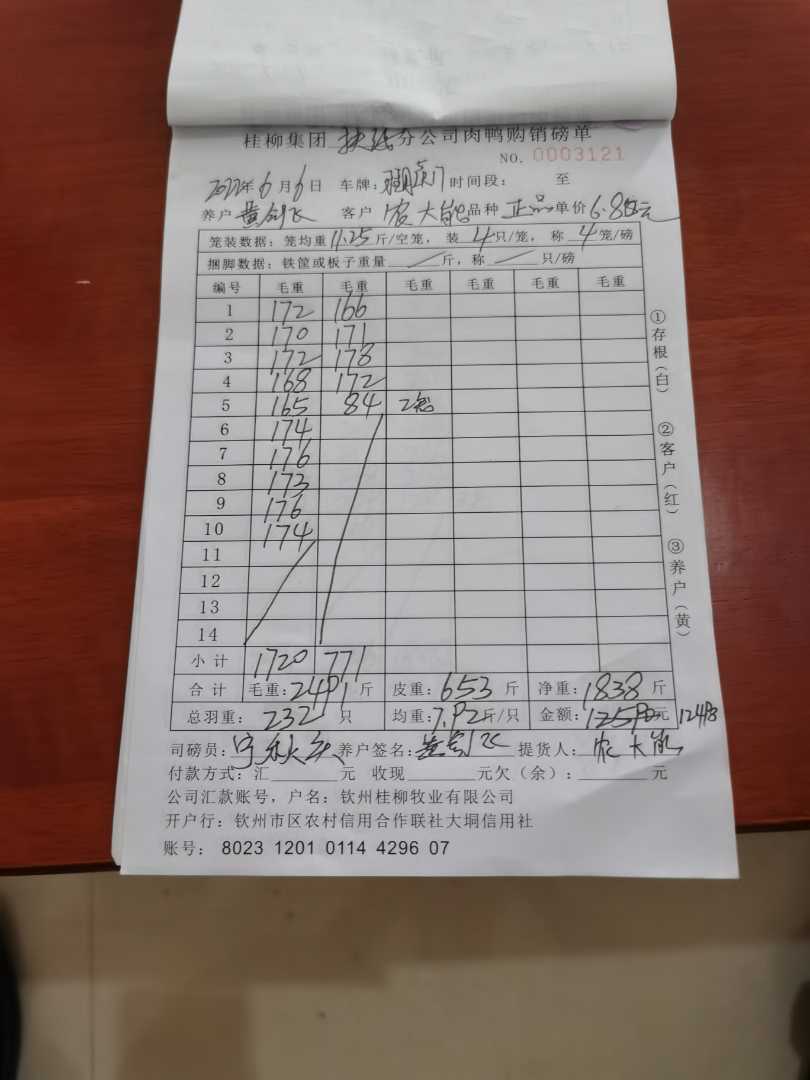 桂柳集团 扶绥 分公司肉鸭购销磅单
NO. 0003121
2022年6月6日 车牌: 时间段: 至
养户 黄剑飞 客户 农大能 品种 正品 单价 6.8 元
笼装数据: 笼均重 11.25 斤/空笼, 装 4 只/笼, 称 4 笼/磅
捆脚数据: 铁筐或板子重量 / 斤, 称 / 只/磅
编号 毛重 毛重 毛重 毛重 毛重 毛重
1 172 166
2 170 171
3 172 178
4 168 172
5 165 84 2笼
6 174
7 176
8 173
9 176
10 174
11
12
13
14
小计 1720 771
合计 毛重: 2491 斤 皮重: 653 斤 净重: 1838 斤
总羽重: 232 只 均重: 7.92 斤/只 金额: 12590 元 12498
司磅员: 养户签名: 黄剑飞 提货人: 农大能
付款方式: 汇 元 收现 元欠(余): 元
公司汇款账号, 户名: 钦州桂柳牧业有限公司
开户行: 钦州市区农村信用合作联社大垌信用社
账号: 8023 1201 0114 4296 07
①存根(白)
②客户(红)
③养户(黄)